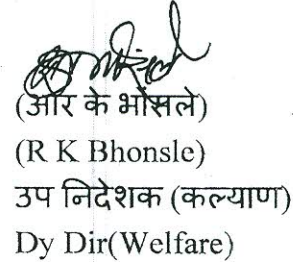 (आर के भोंसले)
(R K Bhonsle)
उप निदेशक (कल्याण)
Dy Dir(Welfare)